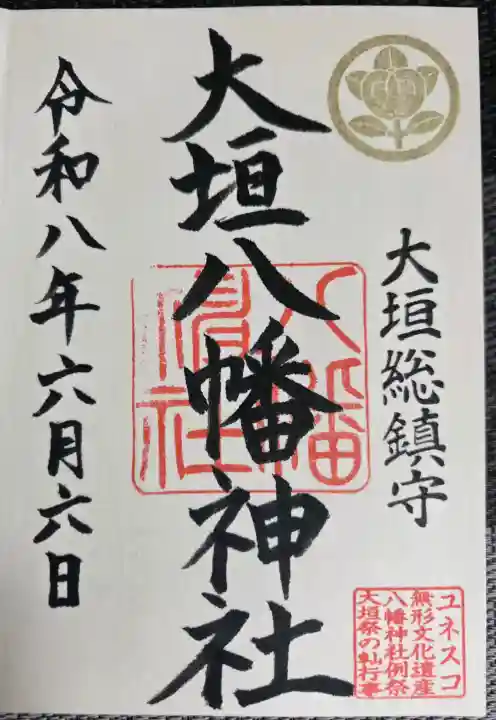 大垣総鎮守
大垣八幡神社
令和八年六月六日
ユネスコ
無形文化遺産
八幡神社例祭
大垣祭の軕行事